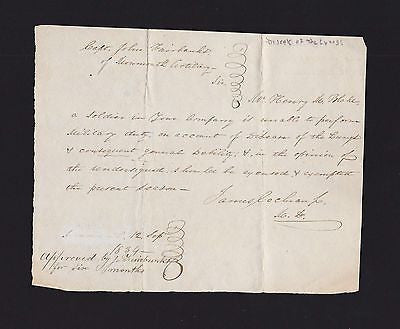 Disease of the Lungs
Capt. John Fairbanks
of Monmouth Artillery
Sir,
Mr. Henry M. Blake
a Soldier in Your Company is unable to perform
Military duty, on account of Disease of the Lungs
& consequent general Debility, & in the opinion of
the undersigned, should be excused & exempted
the present season —
James Cochran Jr.
M. D.
12 Sept
1839
Approved by J. Fairbanks
for six months